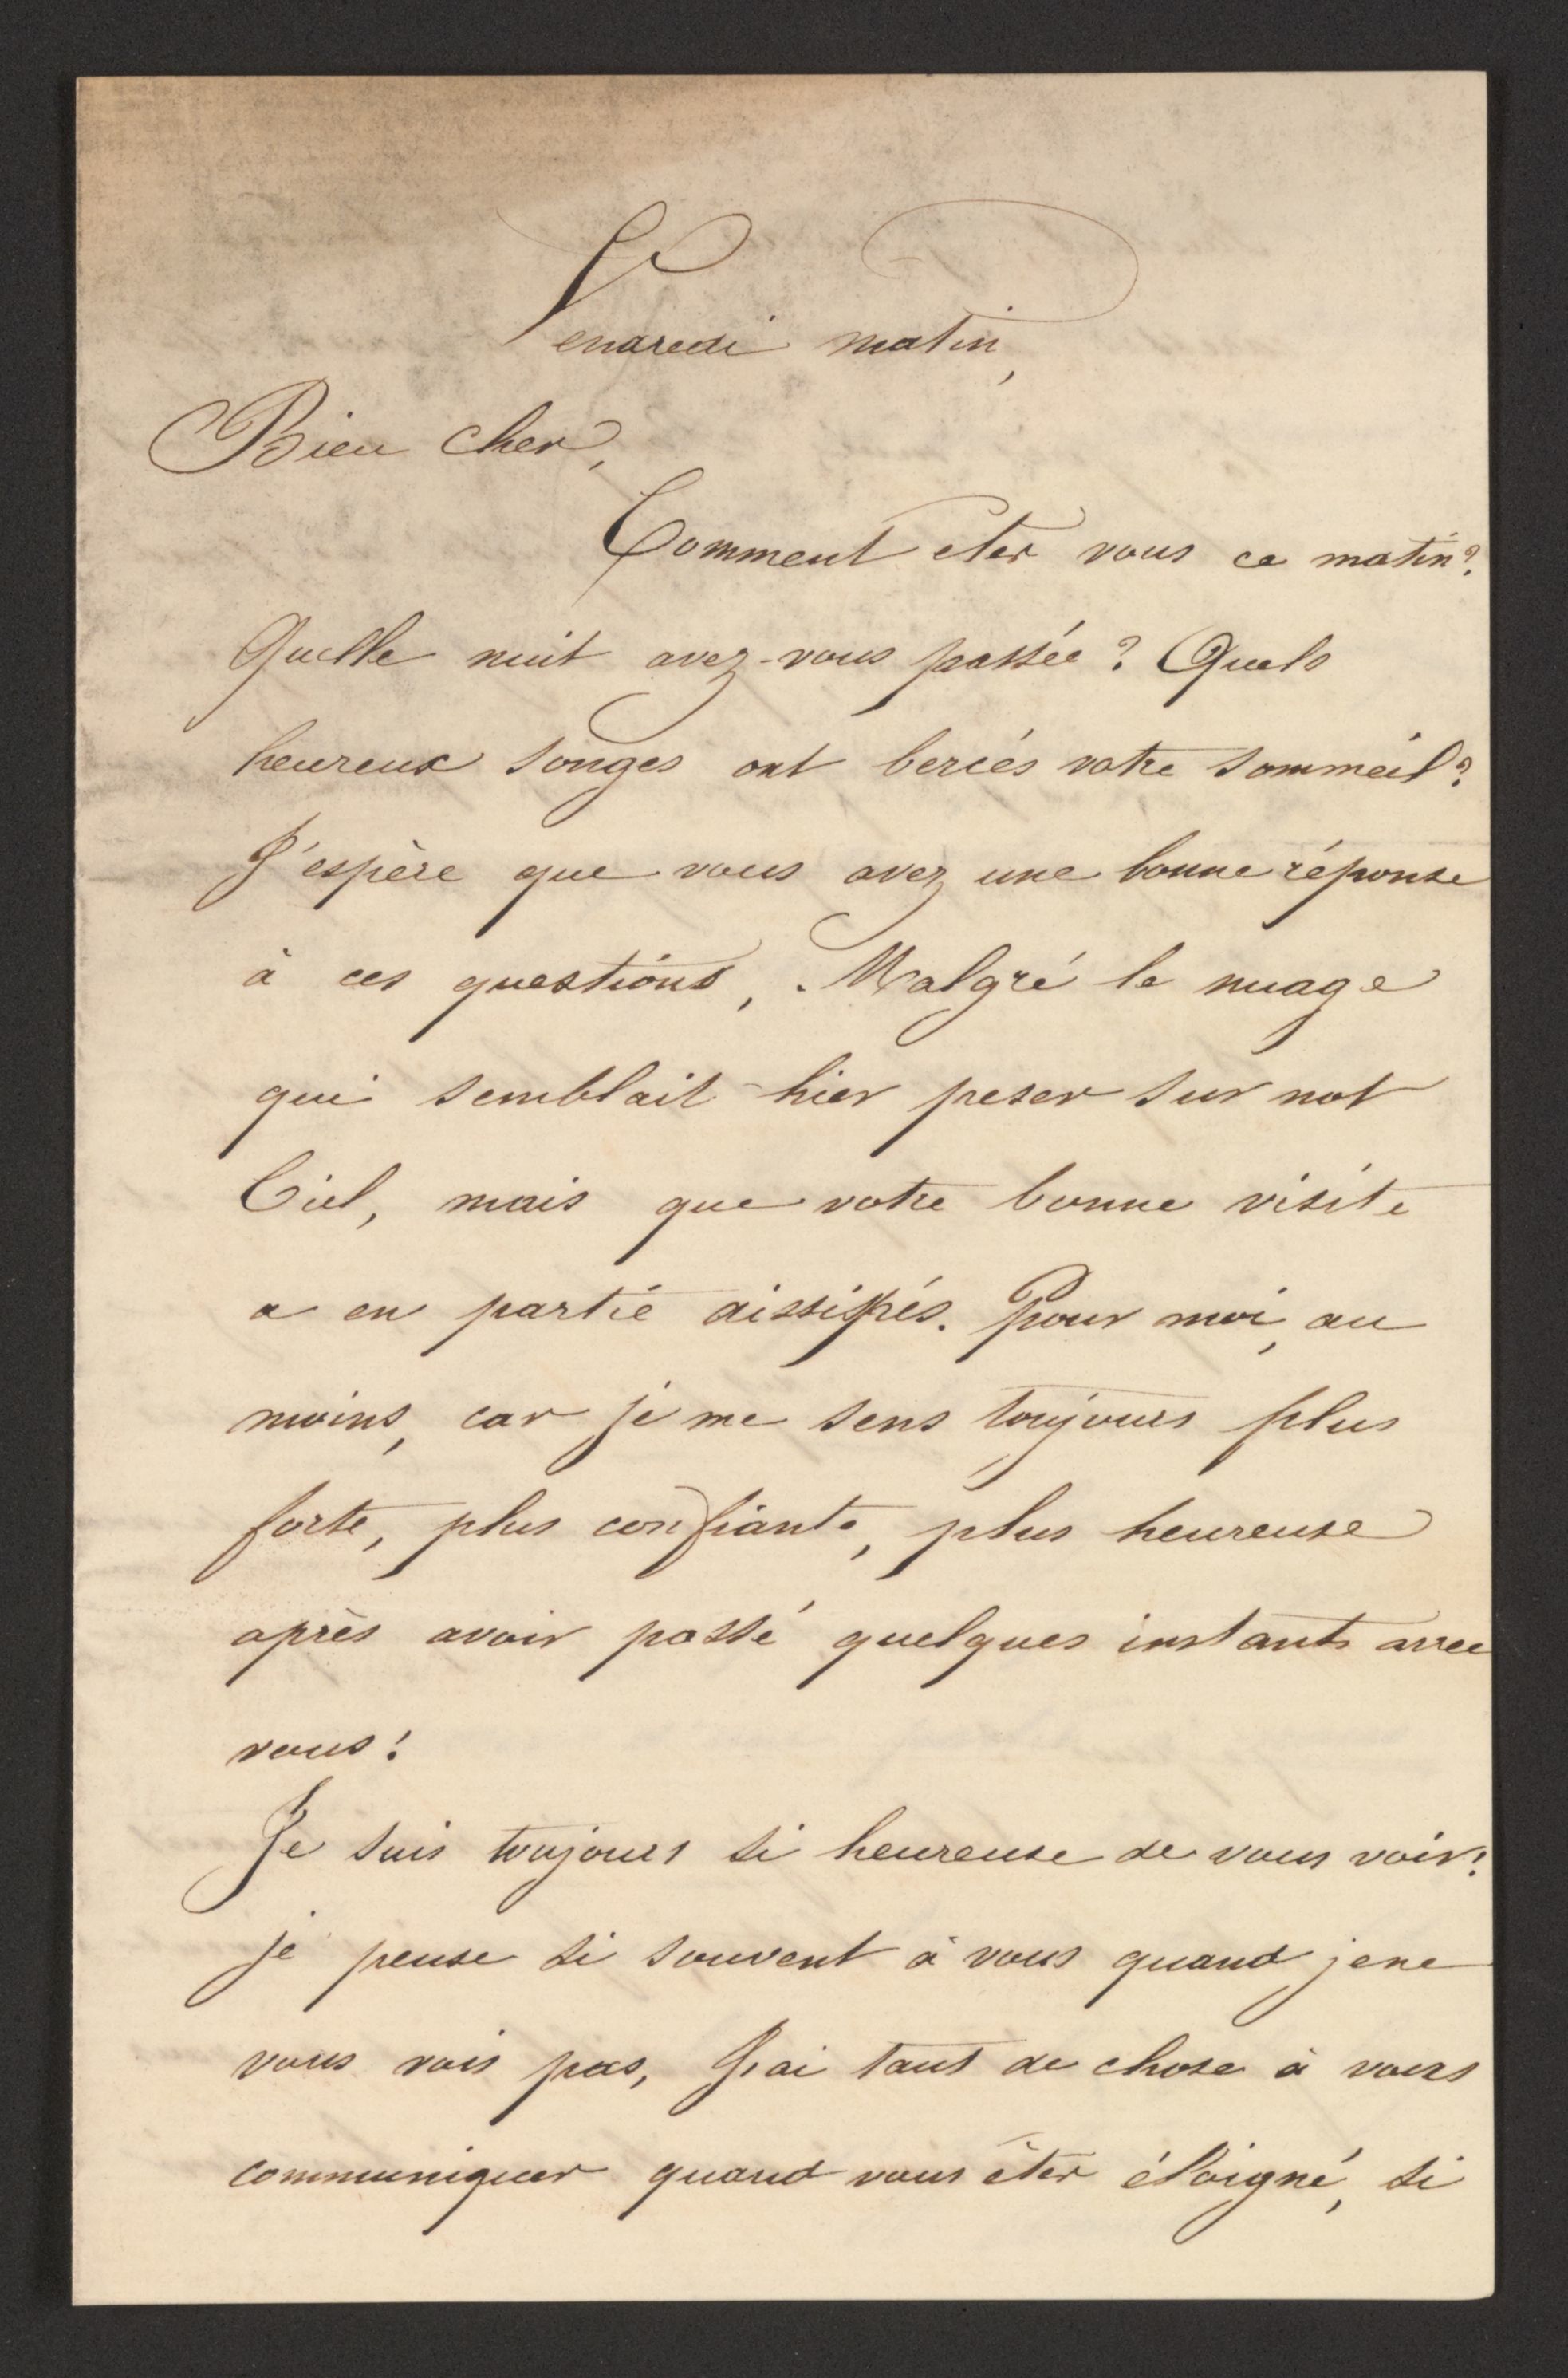 Vendredi matin,
Bien cher,
Comment etes vous ce matin?
Quelle nuit avez-vous passée? Quels
heureux songes ont bercés votre sommeil?
J'espère que vous avez une bonne réponse
à ces questions, Malgré le nuage
qui semblait hier peser sur not
Ciel, mais que votre bonne visite
a en partie dissipés. Pour moi, au
moins, car je me sens toujours plus
forte, plus confiante, plus heureuse
après avoir passé quelques instants avec
vous!
Je suis toujours si heureuse de vous voir!
je pense si souvent à vous quand je ne
vous vois pas, J'ai tant de chose à vous
communiquer quand vous êtes éloigné, si